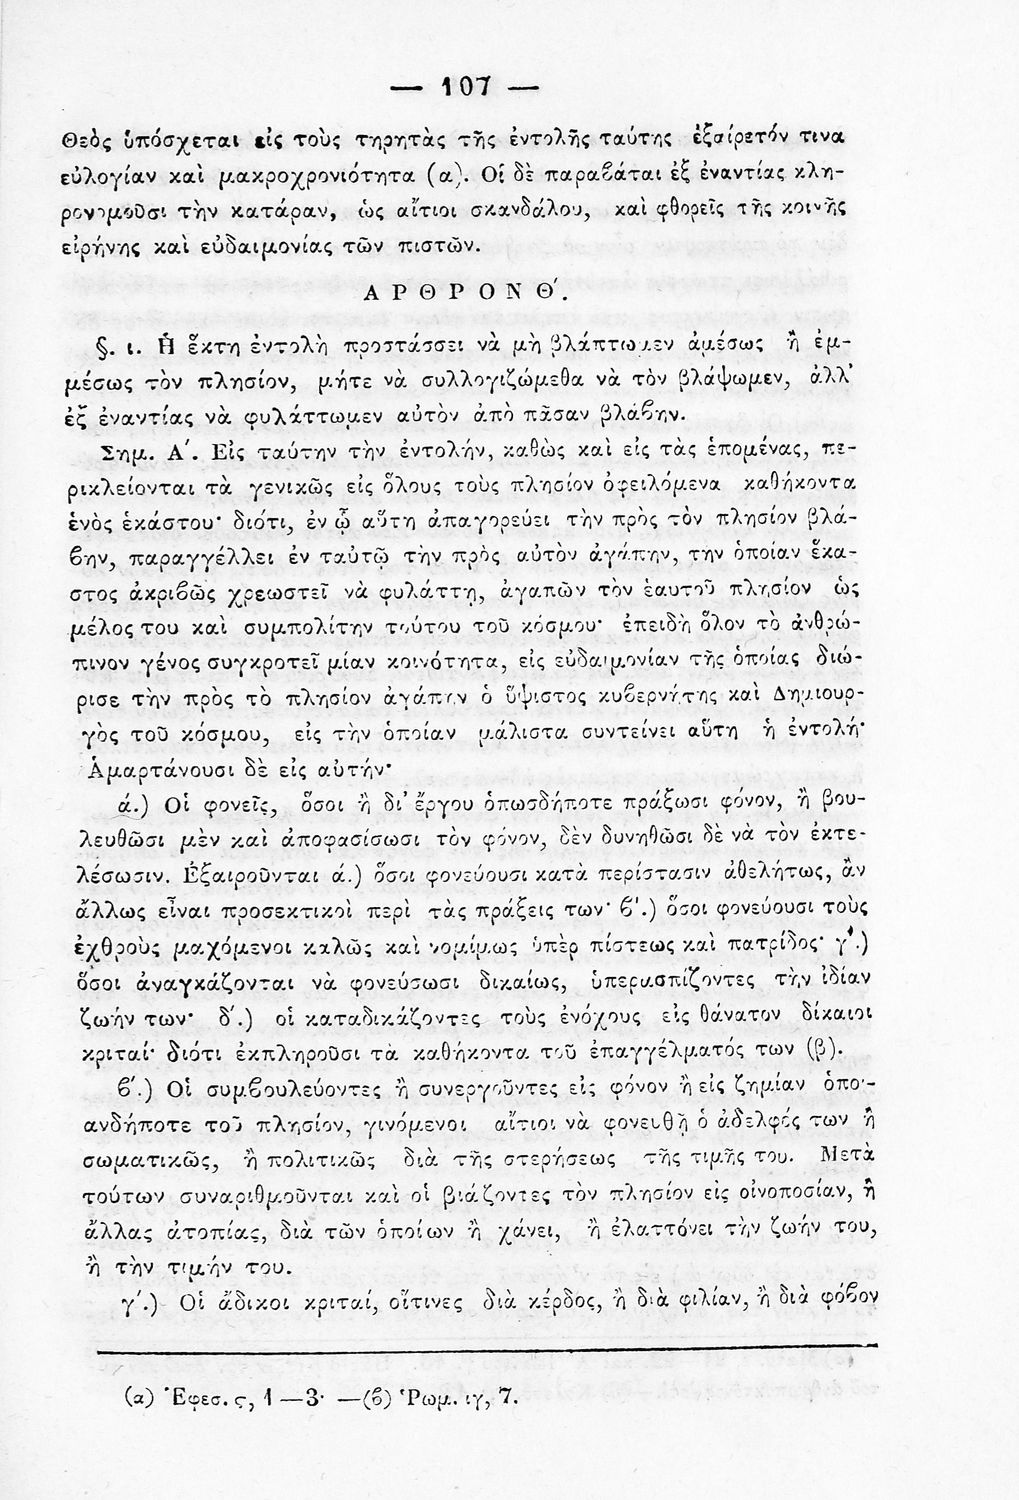 — 107 —
Θεὸς ὑπόσχεται εἰς τοὺς τηρητὰς τῆς ἐντολῆς ταύτης ἐξαίρετόν τινα
εὐλογίαν καὶ μακροχρονιότητα (α). Οἱ δὲ παραϐάται ἐξ ἐναντίας κλη-
ρονομοῦσι τὴν κατάραν, ὡς αἴτιοι σκανδάλου, καὶ φθορεῖς τῆς κοινῆς
εἰρήνης καὶ εὐδαιμονίας τῶν πιστῶν.
ΑΡΘΡΟΝ Θ΄.
§. ι. Ἡ ἕκτη ἐντολὴ προστάσσει νὰ μὴ βλάπτωμεν ἀμέσως ἢ ἐμ-
μέσως τὸν πλησίον, μήτε νὰ συλλογιζώμεθα νὰ τὸν βλάψωμεν, ἀλλ’
ἐξ ἐναντίας νὰ φυλάττωμεν αὐτὸν ἀπὸ πᾶσαν βλάϐην.
Σημ. Α΄. Εἰς ταύτην τὴν ἐντολήν, καθὼς καὶ εἰς τὰς ἑπομένας, πε-
ρικλείονται τὰ γενικῶς εἰς ὅλους τοὺς πλησίον ὀφειλόμενα καθήκοντα
ἑνὸς ἑκάστου· διότι, ἐν ᾧ αὕτη ἀπαγορεύει τὴν πρὸς τὸν πλησίον βλά-
ϐην, παραγγέλλει ἐν ταὐτῷ τὴν πρὸς αὐτὸν ἀγάπην, την ὁποίαν ἕκα-
στος ἀκριϐῶς χρεωστεῖ νὰ φυλάττῃ, ἀγαπῶν τὸν ἑαυτοῦ πλησίον ὡς
μέλος του καὶ συμπολίτην τούτου τοῦ κόσμου· ἐπειδὴ ὅλον τὸ ἀνθρώ-
πινον γένος συγκροτεῖ μίαν κοινότητα, εἰς εὐδαιμονίαν τῆς ὁποίας διώ-
ρισε τὴν πρὸς τὸ πλησίον ἀγάπην ὁ ὕψιστος κυϐερνήτης καὶ Δημιουρ-
γὸς τοῦ κόσμου, εἰς τὴν ὁποίαν μάλιστα συντείνει αὕτη ἡ ἐντολή·
Ἁμαρτάνουσι δὲ εἰς αὐτήν·
ά.) Οἱ φονεῖς, ὅσοι ἢ δι’ ἔργου ὁπωσδήποτε πράξωσι φόνον, ἢ βου-
λευθῶσι μὲν καὶ ἀποφασίσωσι τὸν φόνον, δὲν δυνηθῶσι δὲ νὰ τὸν ἐκτε-
λέσωσιν. Ἐξαιροῦνται ά.) ὅσοι φονεύουσι κατὰ περίστασιν ἀθελήτως, ἂν
ἄλλως εἶναι προσεκτικοὶ περὶ τὰς πράξεις των· ϐ΄.) ὅσοι φονεύουσι τοὺς
ἐχθροὺς μαχόμενοι καλῶς καὶ νομίμως ὑπὲρ πίστεως καὶ πατρίδος· γ΄.)
ὅσοι ἀναγκάζονται νὰ φονεύσωσι δικαίως, ὑπερασπίζοντες τὴν ἰδίαν
ζωήν των· δ΄.) οἱ καταδικάζοντες τοὺς ἐνόχους εἰς θάνατον δίκαιοι
κριταί· διότι ἐκπληροῦσι τὰ καθήκοντα τοῦ ἐπαγγέλματός των (β).
ϐ΄.) Οἱ συμϐουλεύοντες ἢ συνεργοῦντες εἰς φόνον ἢ εἰς ζημίαν ὁπο-
ανδήποτε τοῦ πλησίον, γινόμενοι αἴτιοι νὰ φονευθῇ ὁ ἀδελφός των ἢ
σωματικῶς, ἢ πολιτικῶς διὰ τῆς στερήσεως τῆς τιμῆς του. Μετὰ
τούτων συναριθμοῦνται καὶ οἱ βιάζοντες τὸν πλησίον εἰς οἰνοποσίαν, ἢ
ἄλλας ἀτοπίας, διὰ τῶν ὁποίων ἢ χάνει, ἢ ἐλαττόνει τὴν ζωήν του,
ἢ τὴν τιμήν του.
γ΄.) Οἱ ἄδικοι κριταί, οἵτινες διὰ κέρδος, ἢ διὰ φιλίαν, ἢ διὰ φόϐον
(α) Ἐφεσ. ς, 1—3· —(ϐ) Ῥωμ. ιγ, 7.